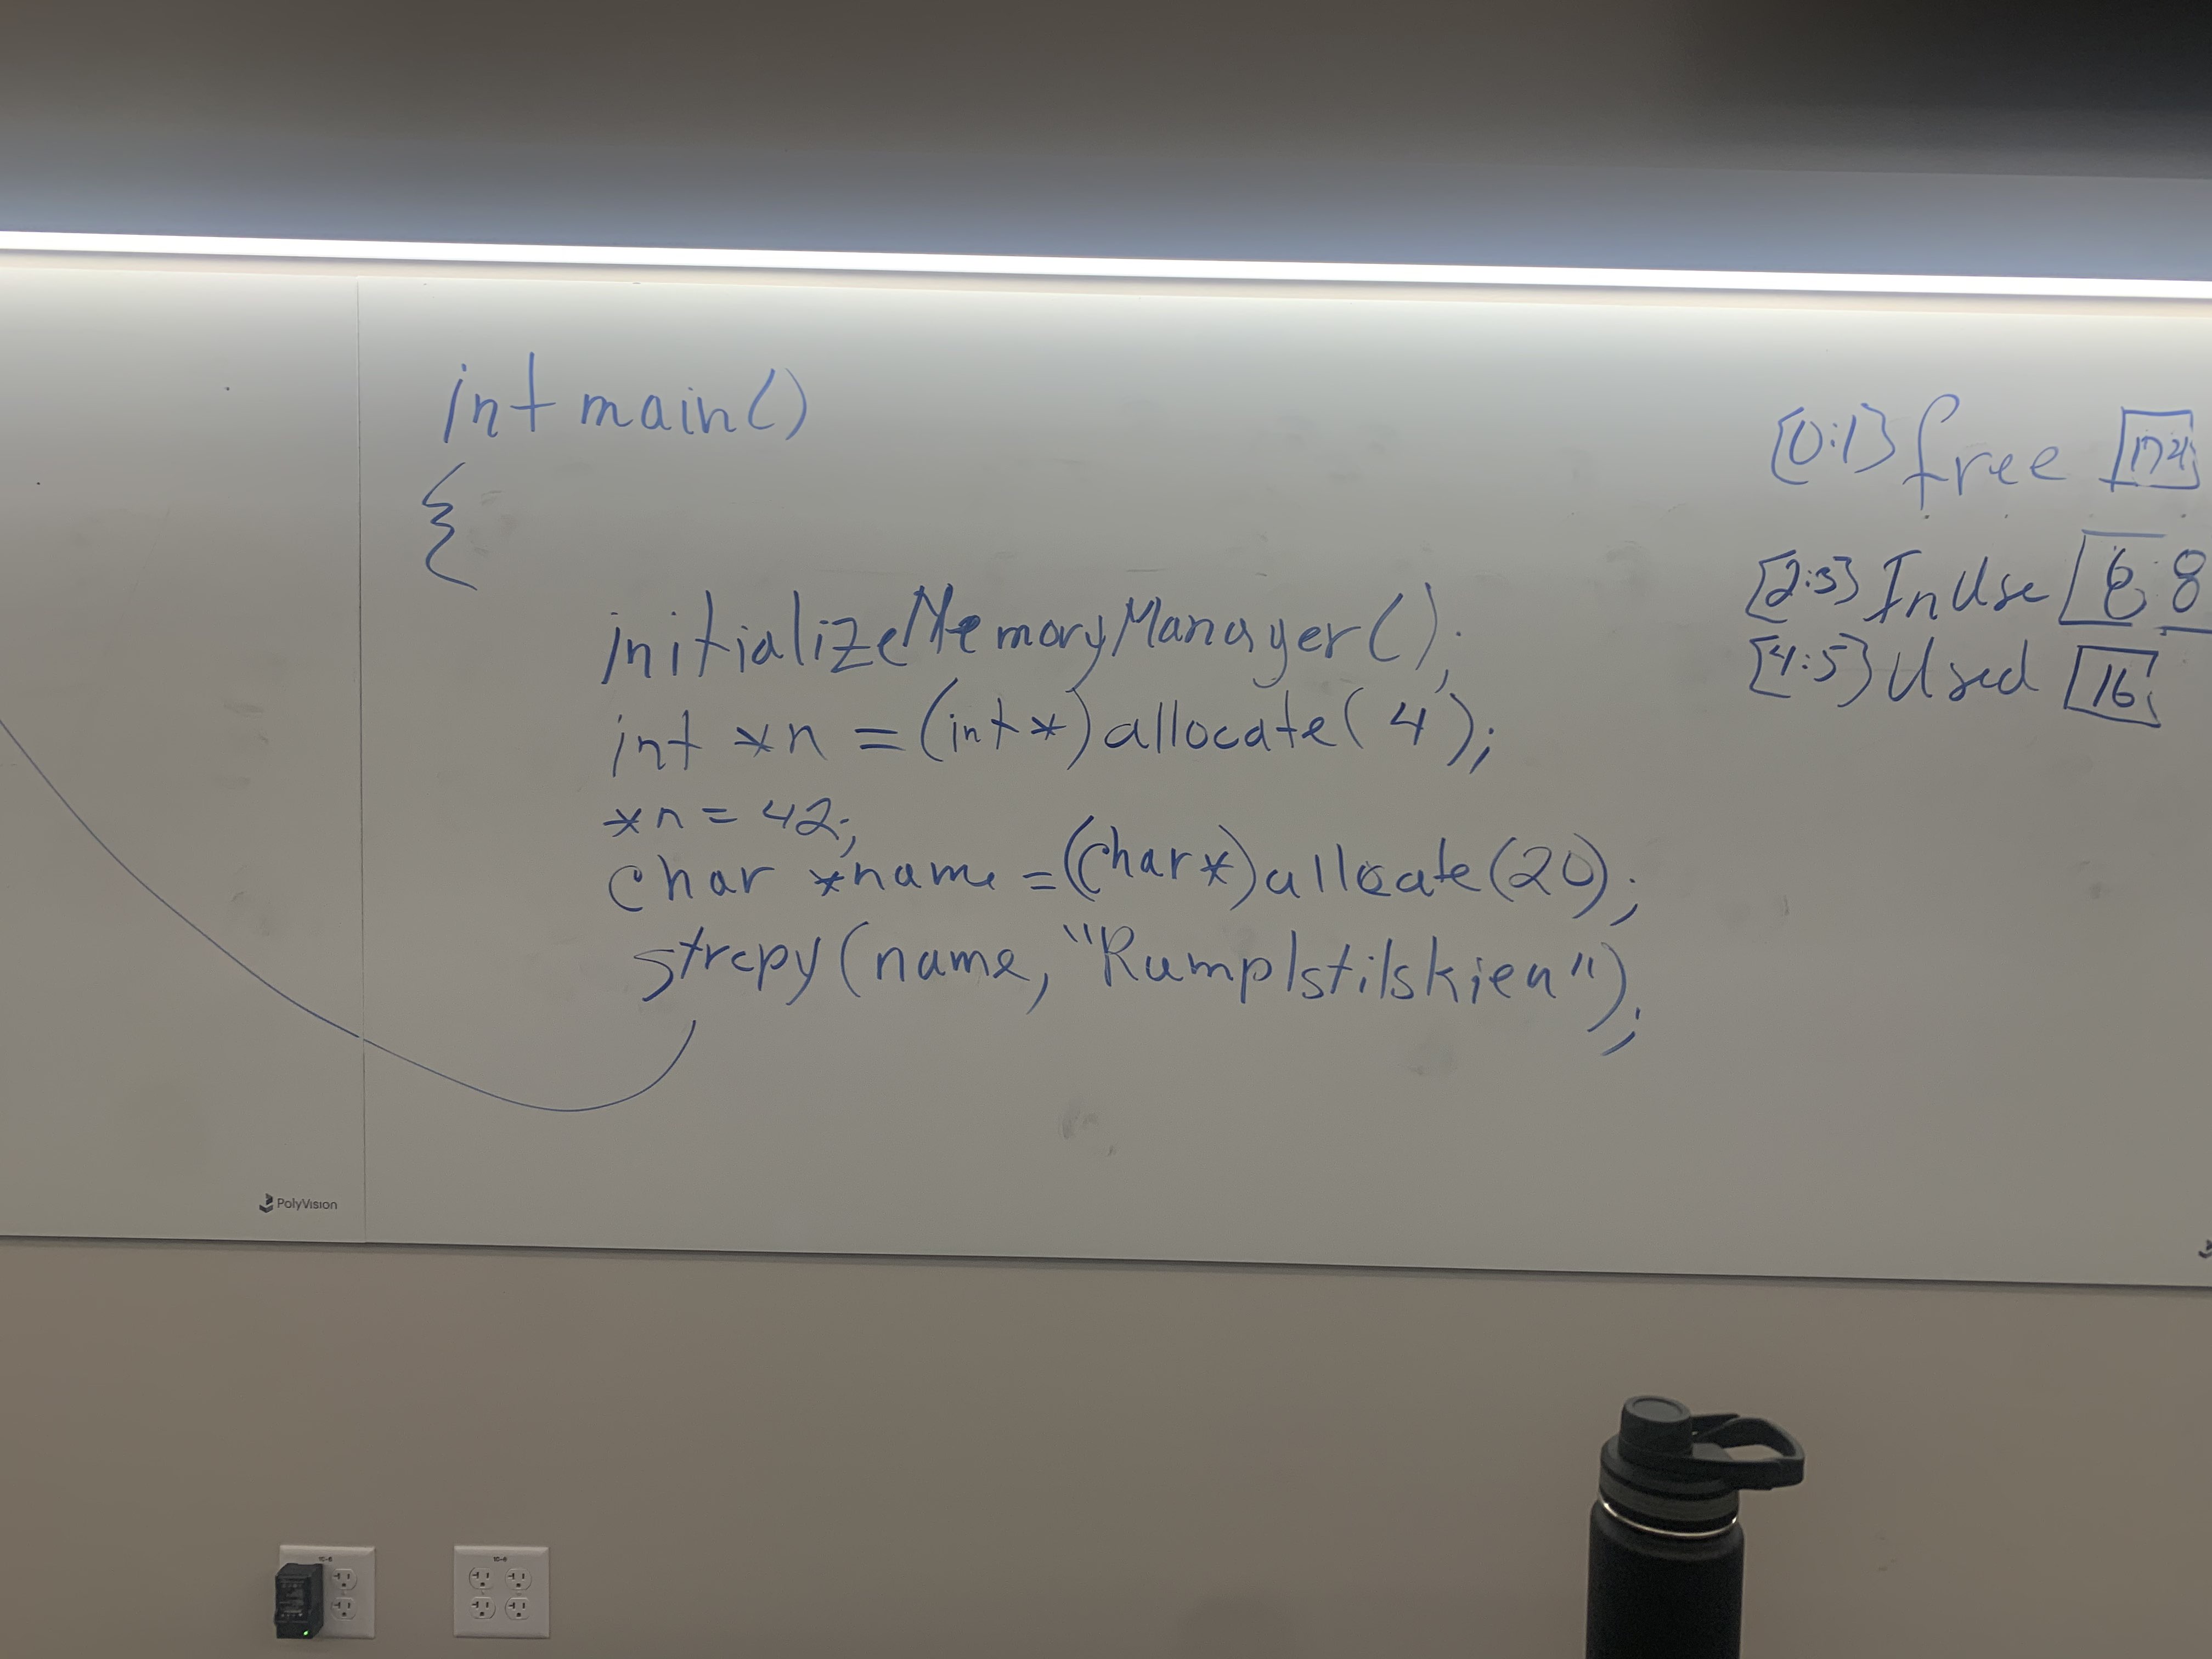 int main()
{
initializeMemoryManager();
int *n = (int*) allocate( 4 );
*n = 42;
char *name = (char*) allocate (20);
strcpy (name, "Rumplstilskien");
[0:1] free
[2:3] In Use 6 8
[4:5] Used 16
PolyVision